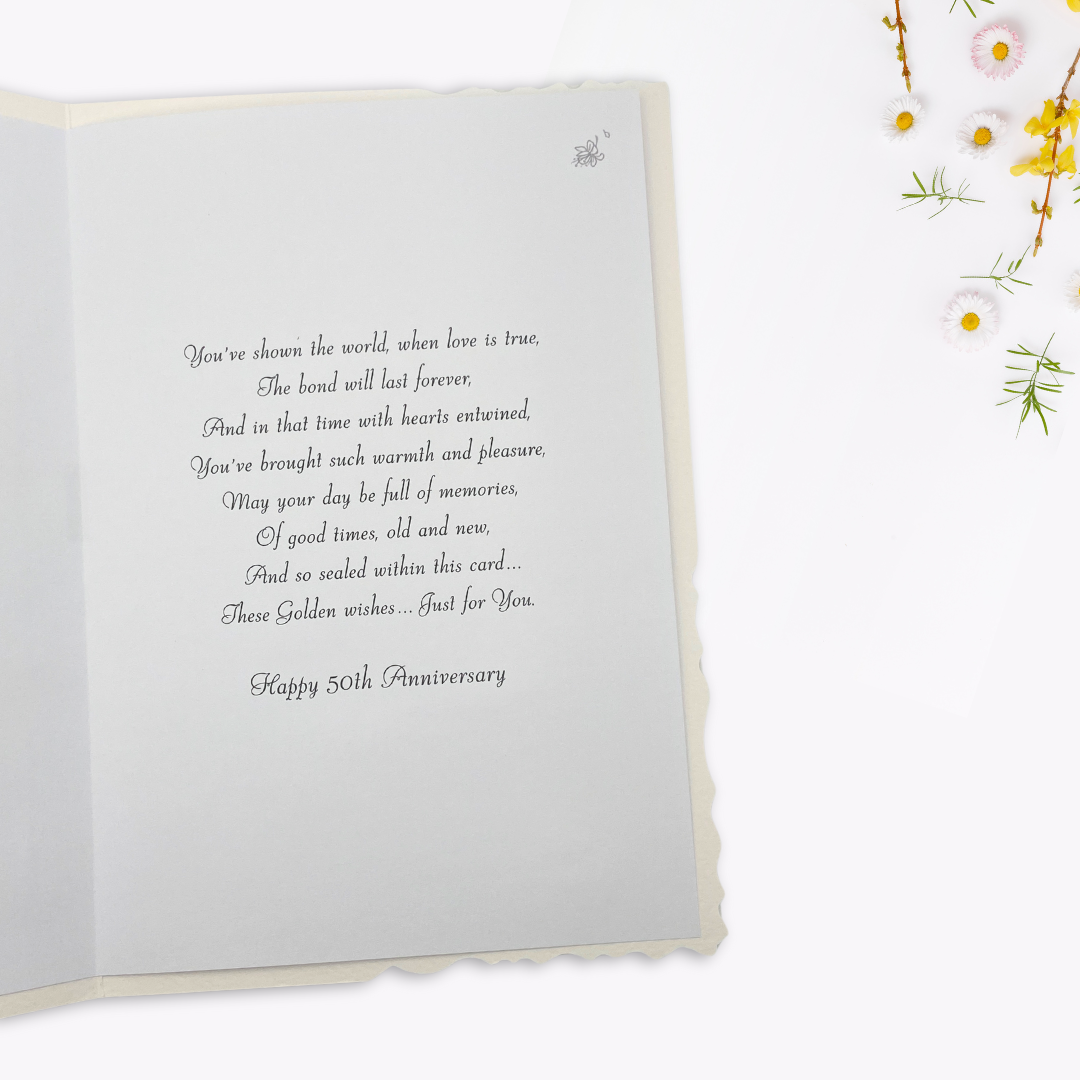 You've shown the world, when love is true,
The bond will last forever,
And in that time with hearts entwined,
You've brought such warmth and pleasure,
May your day be full of memories,
Of good times, old and new,
And so sealed within this card...
These Golden wishes... Just for You.
Happy 50th Anniversary